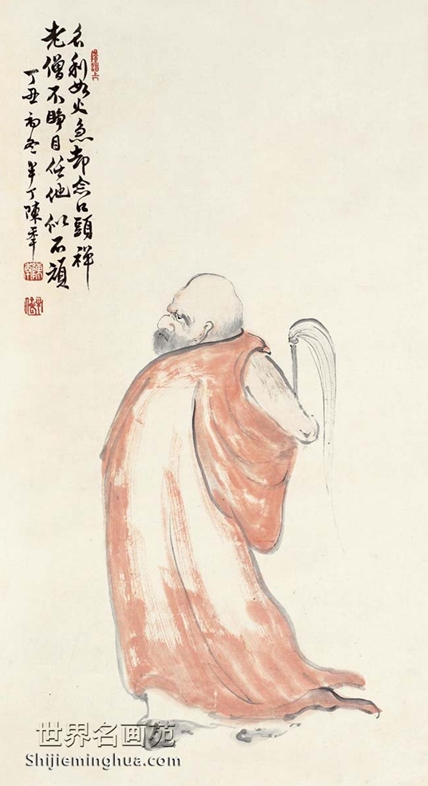 名利如火急却念口頭禪
老僧不睁目任他似石頑
丁丑初冬半丁陳年
世界名画苑
Shijieminghua.com